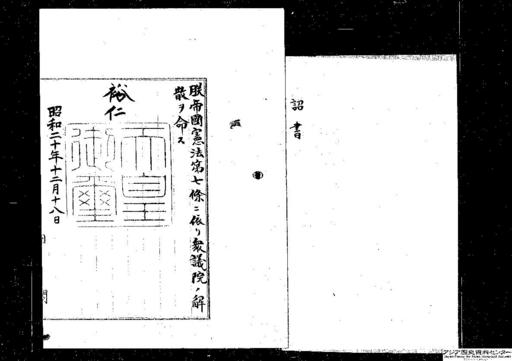 詔書
朕帝國憲法第七條ニ依リ衆議院ノ解
散ヲ命ス
裕仁
天皇
御璽
昭和二十年十二月十八日
アジア歴史資料センター